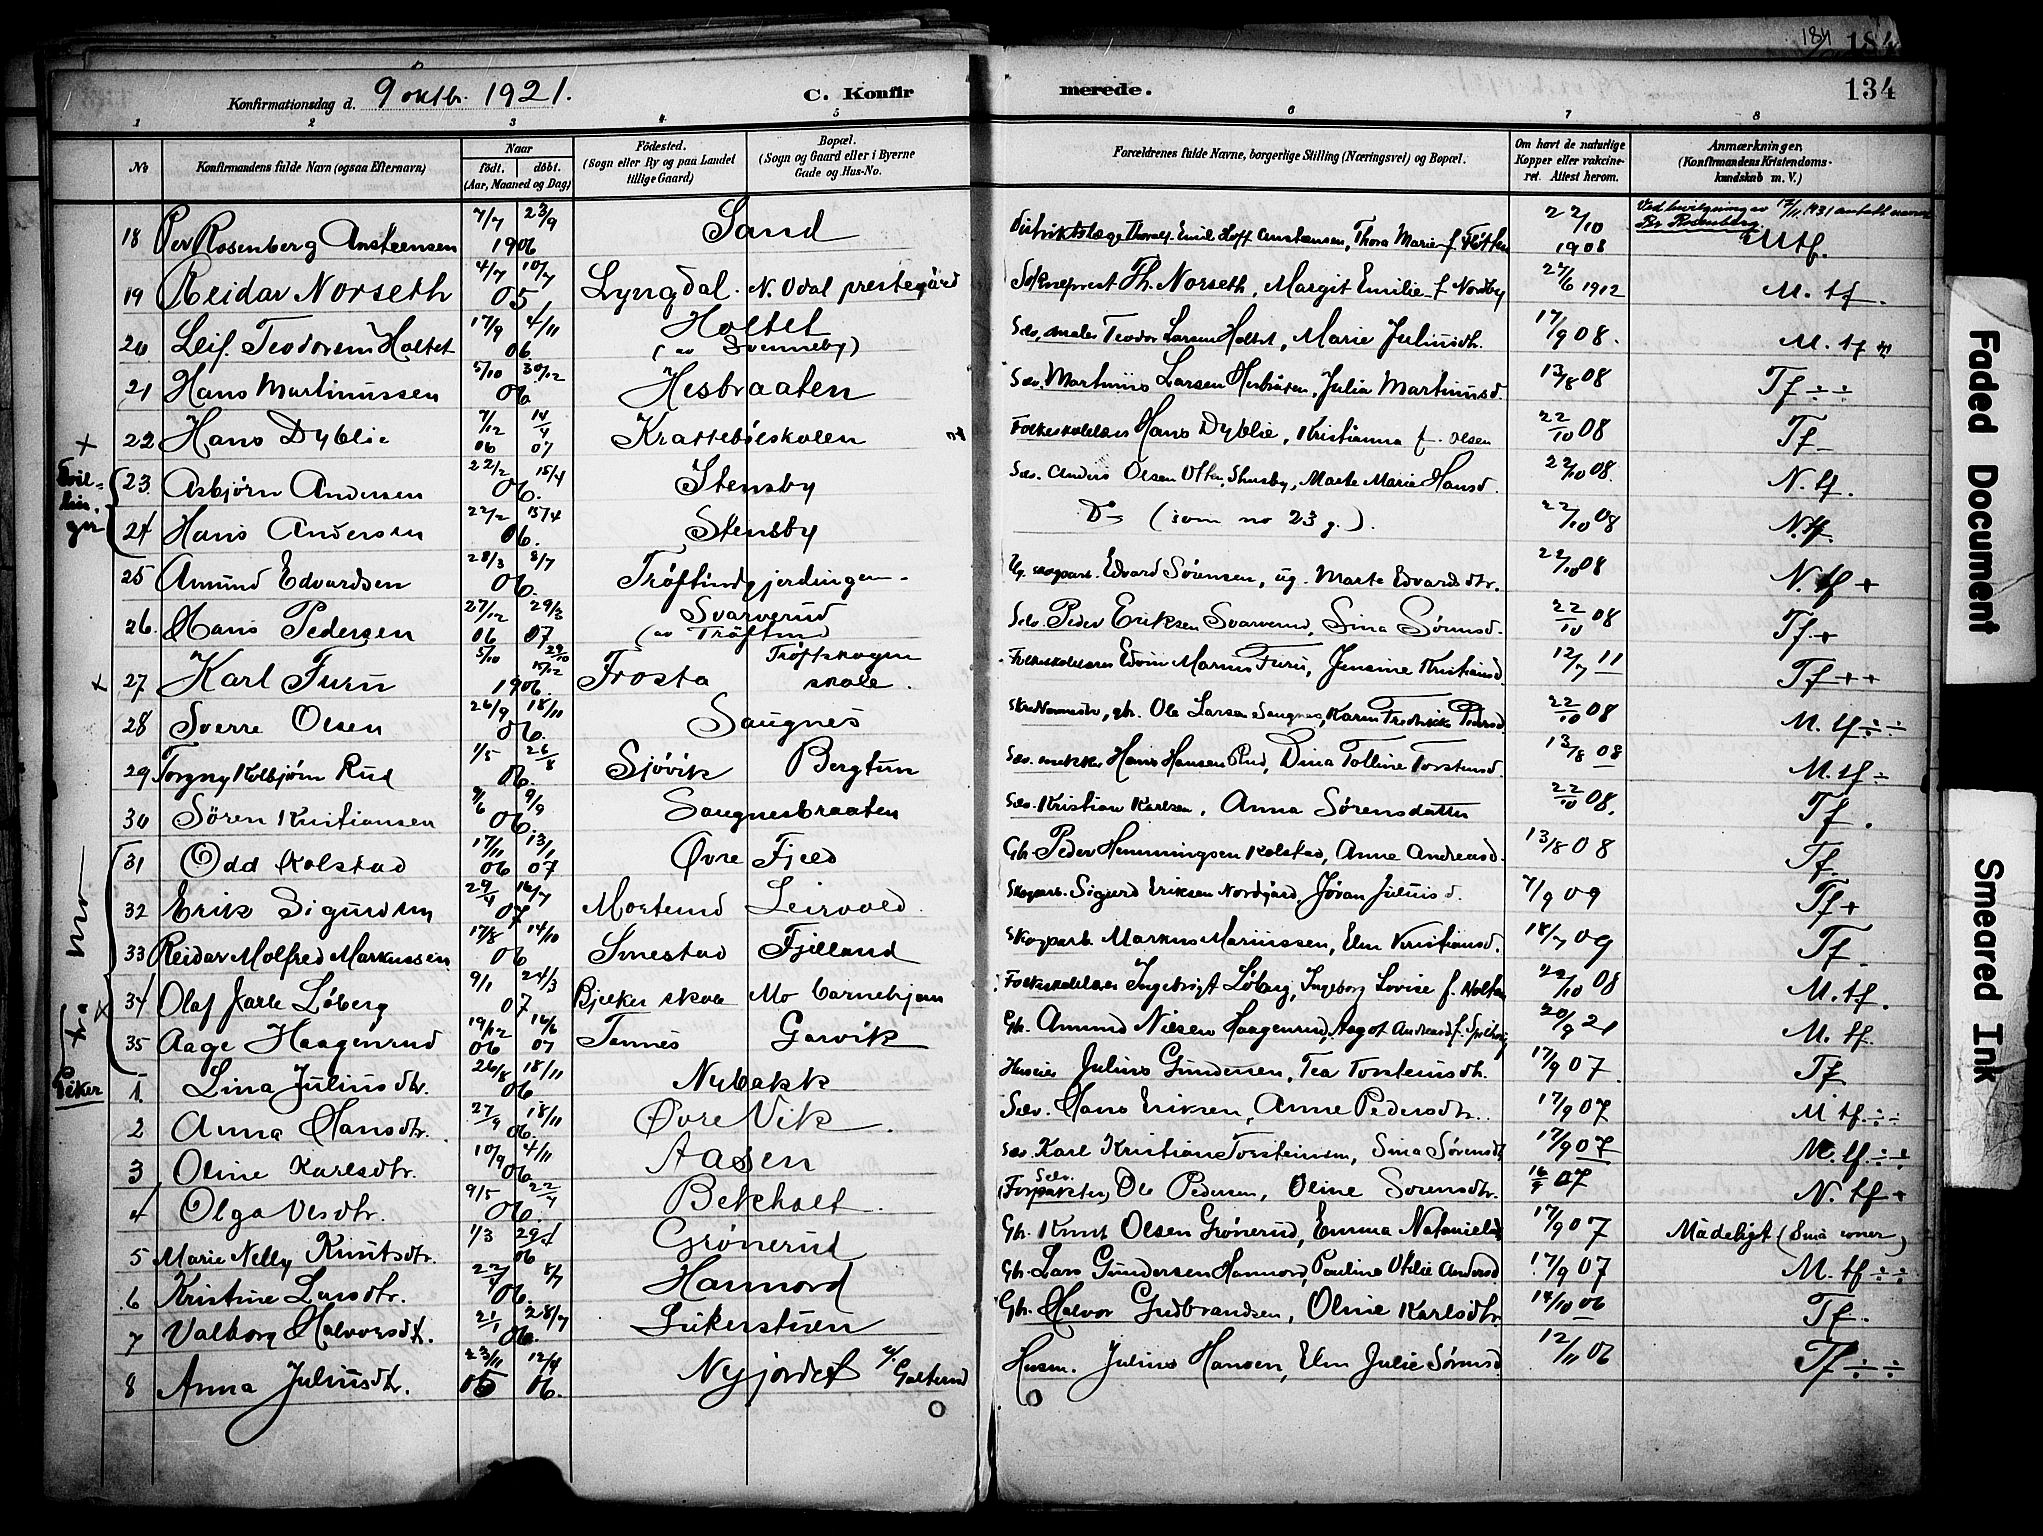 184 184
Konfirmationsdag d. 9 oktbr. 1921. C. Konfir merede. 134
1 2 3 4 5 6 7 8
No Konfirmandens fulde Navn (ogsaa Efternavn) Naar födt. döbt. (Aar, Maaned og Dag) Födested. (Sogn eller By og paa Landet tillige Gaard) Bopæl. (Sogn og Gaard eller i Byerne Gade og Hus-No. Forældrenes fulde Navne, borgerlige Stilling (Næringsvei) og Bopæl. Om havt de naturlige Kopper eller vakcineret. Attest herom. Anmærkninger. (Konfirmandens Kristendomskundskab m. V.)
Ved bevilgning av 17/11 1931 antatt navnet Per Rosenberg
18 Per Rosenberg Ansteensen 7/7 23/9 1906 Sand Distriktslæge Thoralf Emil Hoff Ansteensen, Thora Marie f. 22/10 1908 Mtf.
19 Reidar Norseth 4/7 10/7 05 Lyngdal. N. Odal prestegård Sokneprest Th. Norseth, Margit Emilie f Nordby 27/6 1912 M. tf.
20 Leif Teodorsen Holtet 17/9 4/11 06 Holtet (av Svenneby) Selv. maler Teodor Larsen Holtet, Marie Juliusdtr. 17/9 08. M. tf
21 Hans Martinussen 5/10 30/12 06 Hesbraaten Selv. Martinus Larsen Hesbråten, Julia Martinusd. 13/8 08 Tf ÷ ÷
+ 22 Hans Dyblie 7/12 06 14/4 07 Krattebölskolen Folkeskolelærer Hans Dyblie, Kristianna f. Olsen 22/10 08 Tf
Tvillinger
23 Asbjörn Andersen 22/2 15/4 06. Stensby Selv. Anders Olsen Stensby, Marte Marie Hansd. 22/10 08. N. tf.
24 Hans Andersen 22/2 15/4 06. Stensby Do (som no 23 g.). 22/10 08 N. tf.
25 Amund Edvardsen 28/3 8/7 06. Tröftindgjerdingen. Ug. skogarb. Edvard Sörensen, ug. Marte Edvardsdtr. 22/10 08 N. tf +
26. Hans Pedersen 27/12 06 29/3 07 Svarverud (av Tröftind) Selv. Peder Eriksen Svarverud, Sina Sörensd. 22/10 08 Tf. +
+ 27 Karl Furu 5/10 29/10 15/12 1906. Frosta Tröftskogen skole. Folkeskolelærer Edvin Marius Furu, Jensine Kristiansd. 12/7 11 Tf + +
28 Sverre Olsen 26/9 18/11 06. Saugnes Skreddermester, gbr. Ole Larsen Saugnes, Karen Fredrikke Pedersd. 22/10 08 M. tf ÷ ÷
29 Torgny Kolbjörn Rud 1/5 26/8 06. Sjövik Bergtun Selv. snekker Hans Hansen Rud, Dina Tolline Torstensd. 13/8 08 M. tf ÷
30 Sören Kristiansen 9/6 9/9 06. Saugnesbraaten Selv. Kristian Karlsen, Anna Sörensdatter 22/10 08. Tf.
Fra Mo
31 Odd Kolstad 17/11 06 13/1 07 Øvre Fjeld Gbr. Peder Hemmingsen Kolstad, Anne Andreasd. 13/8 08 Tf
32 Erik Sigurdsen 29/4 16/7 07 Mortsund Leirvold. Skogarb. Sigurd Eriksen Nordgård, Jöran Juliusd. 7/9 09 Tf +
33 Reidar Molfred Markussen 17/8 14/10 06 Smestad Fjelland Skogarb. Markus Mariussen, Elen Kristiansd. 18/7 09 Tf
+ 34 Olaf Jarle Löberg 9/1 24/3 07 Bjerker skole Mo barnehjem Folkeskolelærer Ingebrigt Löberg, Ingeborg Lovise f. Holten 22/10 08 M. tf.
35 Aage Haagenrud 19/12 06 16/6 07 Tannes Garvik Gbr. Amund Nilsen Haagenrud, Aagot Andreasd. f. 20/9 21 M. tf.
Piker
1. Lina Juliusdtr. 26/8 18/11 06 Nybakk Huseier Julius Gundersen, Tea Torstensdtr. 17/9 07. Tf
2 Anna Hansdtr. 27/9 18/11 06. Øvre Vik Selv. Hans Eriksen, Anne Pedersdtr. 17/9 07 M tf. ÷ ÷
3 Oline Karlsdtr. 10/9 4/11 06 Aasen Selv. Karl Kristian Torsteinsen, Sina Sörensdt. 17/9 07 M. tf. ÷ ÷
4 Olga Olesdtr. 9/5 22/7 06. Bekholt. Selv. (Forpakter) Ole Pedersen, Oline Sorensdtr. 16/9 07 N. tf +
5 Marie Nelly Knutsdtr. 1/3 29/4 06 Grönerud Gbr. Knut Olsen Grönerud, Emma Natanielsd. 17/9 07 Mådeligt (Små evner)
6 Kristine Larsdtr. 22/4 8/7 06. Hannord Gbr. Lars Gundersen Hannord, Pauline Otelie Andersd 17/9 07 M. tf ÷ ÷
7 Valborg Halvorsdt. 21/1 28/7 06. Gbr. Halvor Gudbrandsen, Oline Karlsdtr. 14/10 06 Tf.
8 Anna Juliusdtr. 23/11 05 12/4 06. Nyjordet u/. Galterud Husm. Julius Hansen, Elen Julie Sörensd 12/11 06 Tf ÷ ÷
Faded Document
Smeared Ink